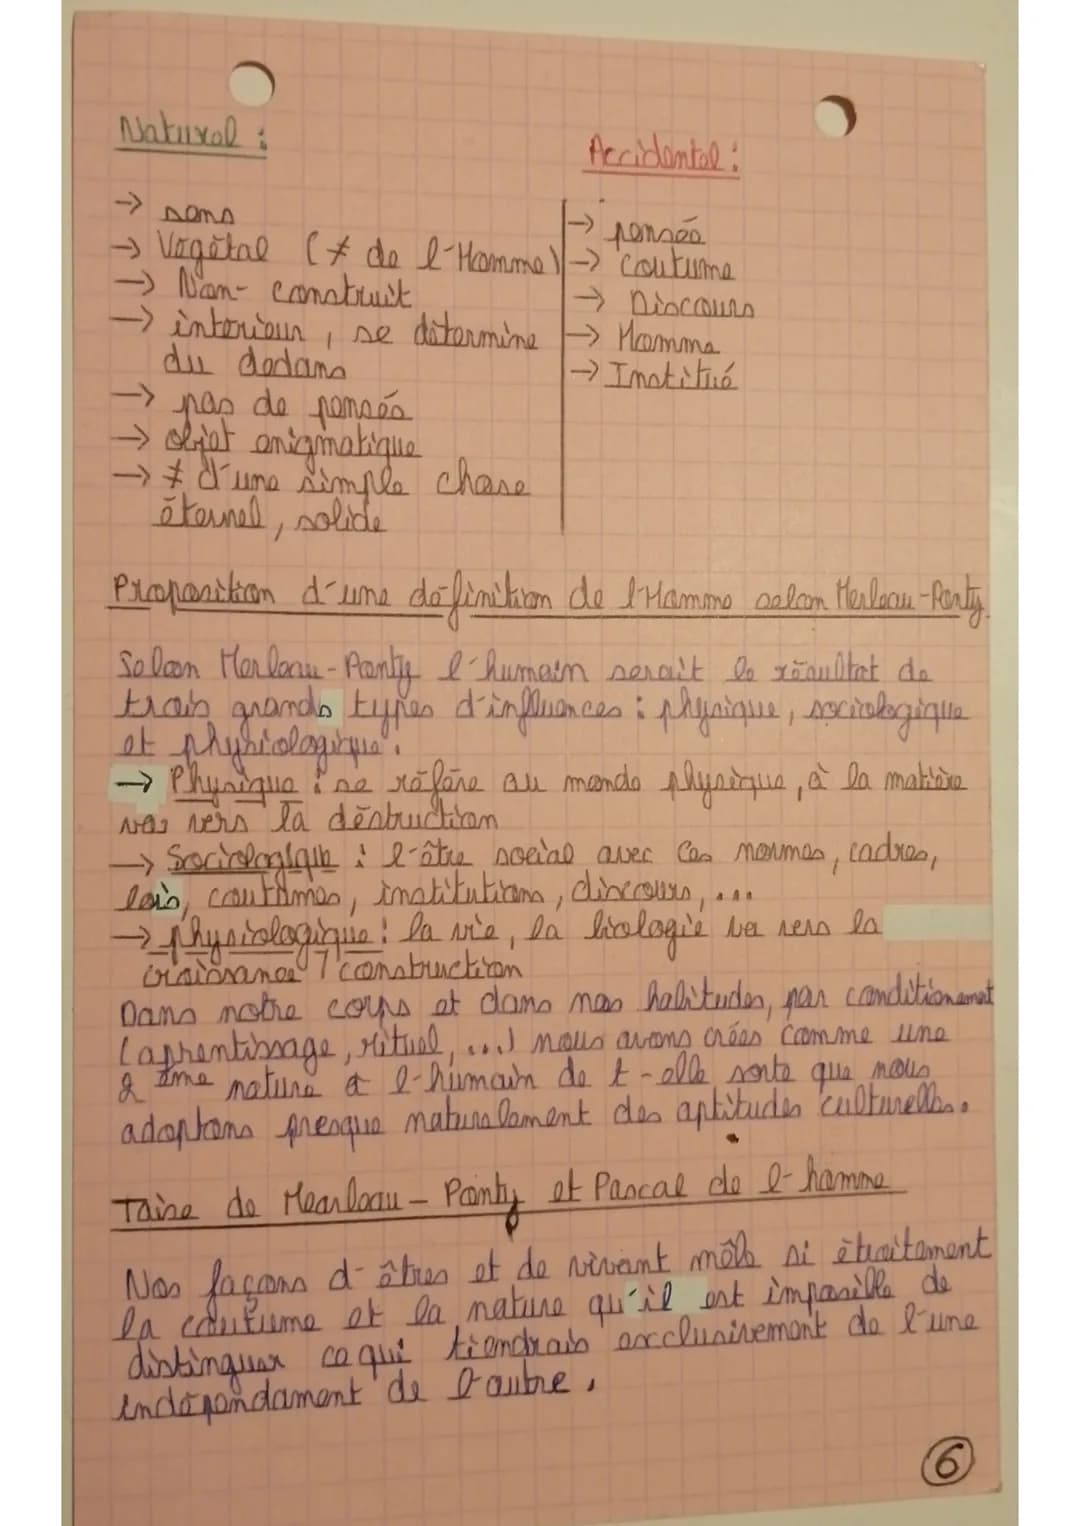 Naturel :
→ sens
→ Végétal (≠ de l'Homme)
→ Non-construit
→ intérieur, se détermine
du dedans
→ pas de pensée
→ objet énigmatique
→ ≠ d'une simple chose
éternel, solide
Accidentel :
→ pensée
→ coutume
→ Discours
→ Homme
→ Institué
Proposition d'une définition de l'Homme selon Merleau-Ponty.
Selon Merleau-Ponty l'humain serait le résultat de
trois grands types d'influences : physique, sociologique
et physiologique.
→ Physique : se réfère au monde physique, à la matière
vers la destruction
→ Sociologique : l'être social avec ces normes, cadres,
lois, coutumes, institutions, discours, ...
→ physiologique : la vie, la biologie va vers la
croissance / construction
Dans notre corps et dans nos habitudes, par conditionement
(aprentissage, rituel, ...) nous avons crées comme une
2 ème nature à l'humain de t-elle sorte que nous
adoptons presque naturelement des aptitudes culturelles.
de Mearleau-Ponty et Pascal de l'homme
Nos façons d'êtres et de vivant mêle si étroitement
la coutume et la nature qu'il est imposible de
distinguer ce qui tiendrais exclusivement de l'une
indépendament de l'autre.
6